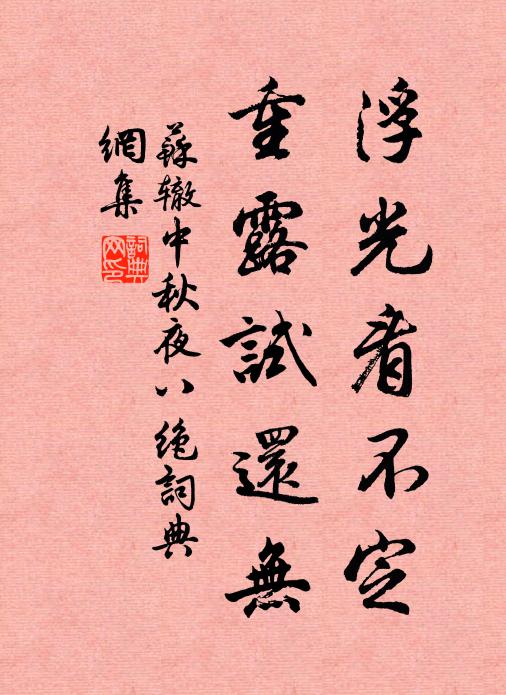 浮光看不定
重露試還無
蘇轍中秋夜八絶詞典
網集
詞典
网印